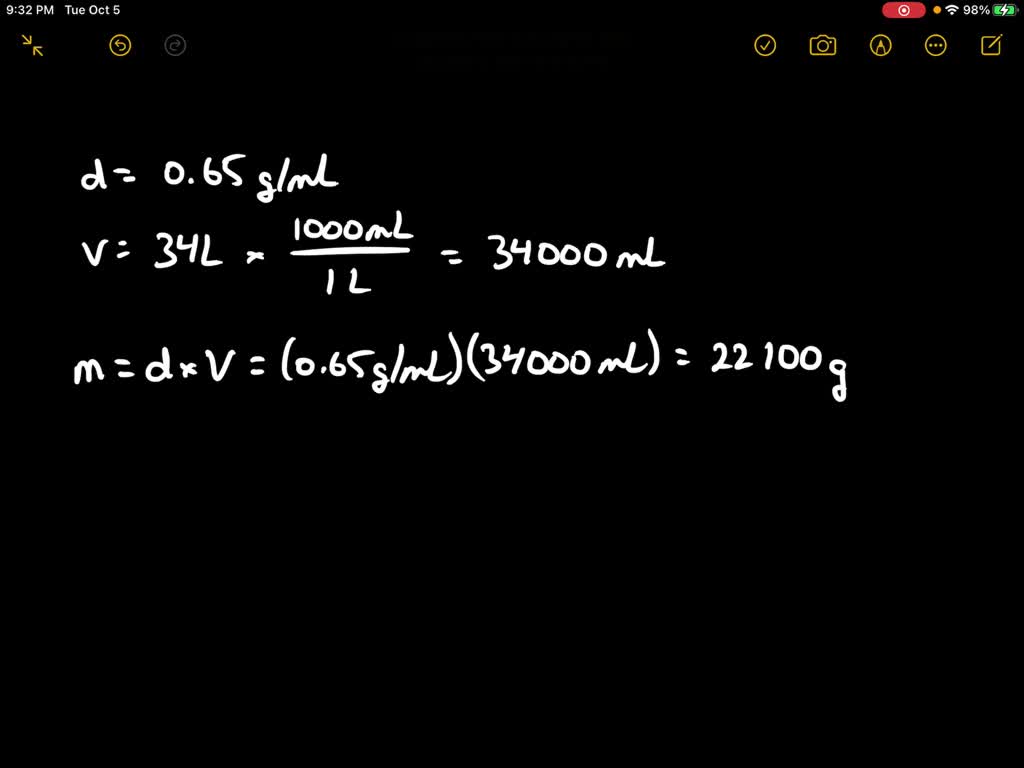 9:32 PM Tue Oct 5 98%
d = 0.65 g/mL
V = 34L × 1000mL / 1L = 34000 mL
m = d × V = (0.65g/mL)(34000 mL) = 22100 g